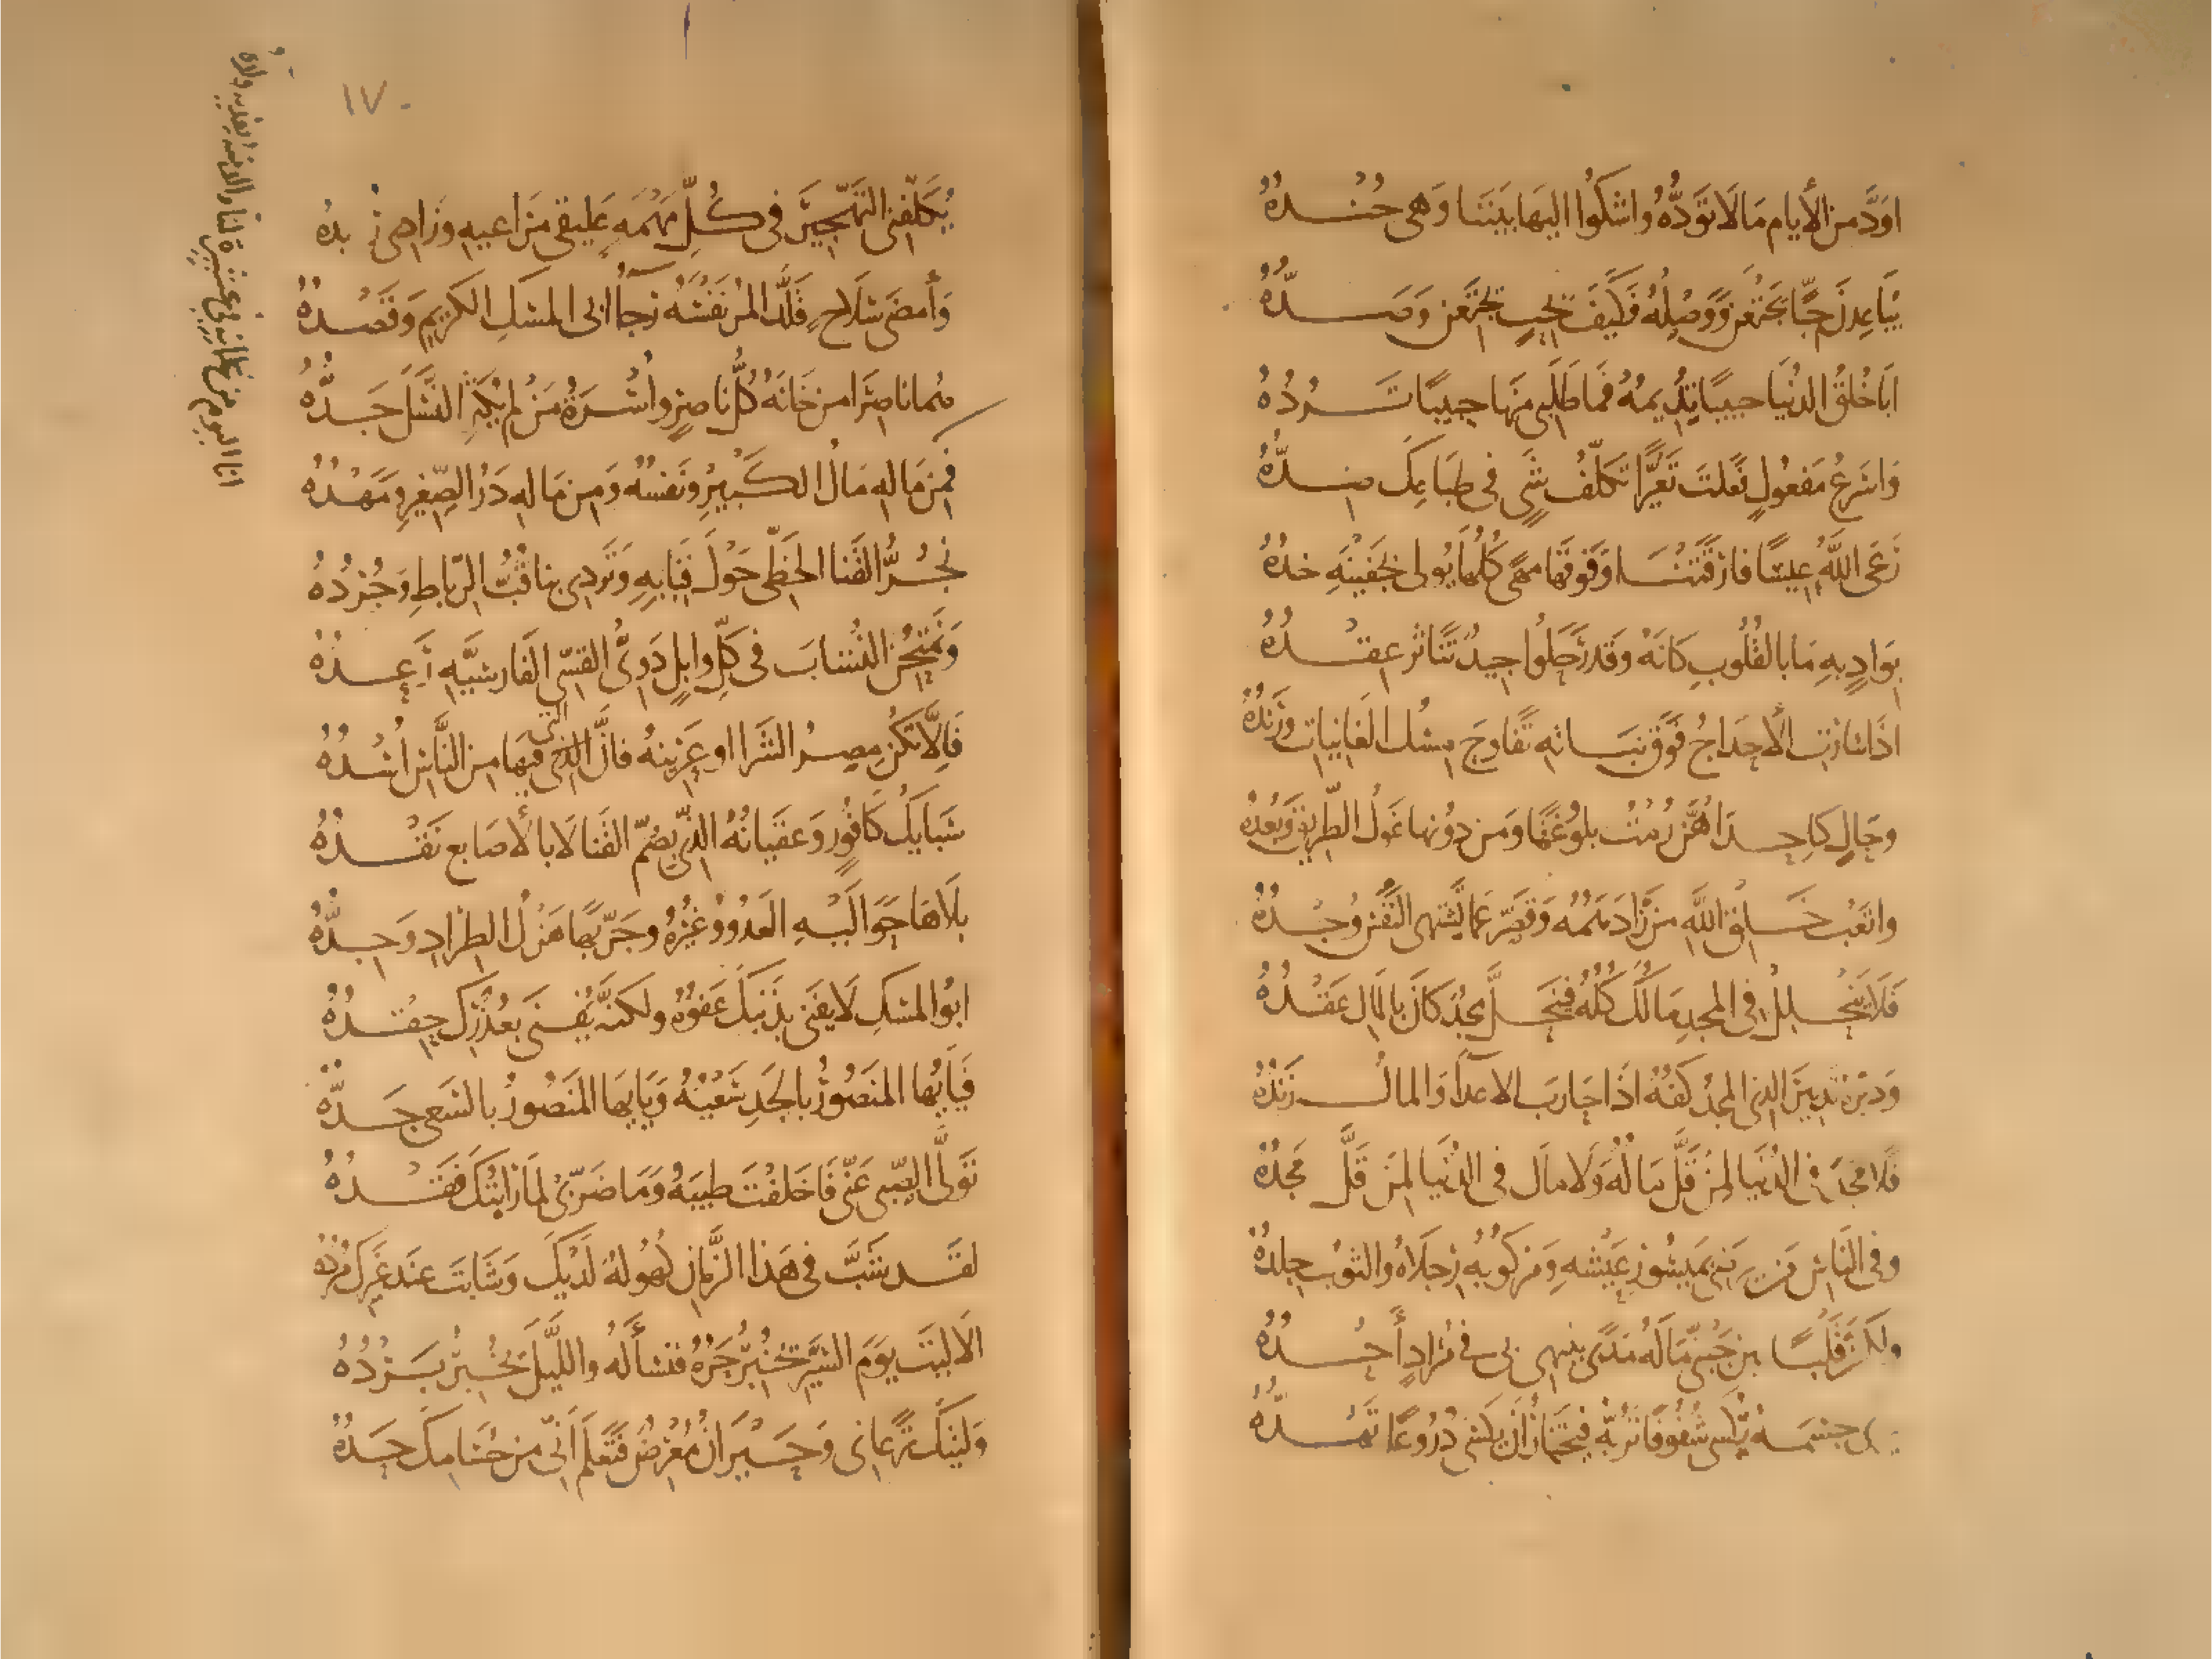 اوَدَّ من الأيام مَا لَا تَوَدُّهُ واشكوا اليها بَيْنَنا وَهى جُنْدُهُ
يُبَاعِدنَ حِبًّا يَجْتَمِعْنَ وَوَصْلُهُ فَكَيْفَ بِحِبٍّ يَجْتَمِعْنَ وَصَدُّهُ
اَبَا خُلقُ الدُنْيَا حبيبًا تُدِيمُهُ فَمَا طَلَبِى مِنها حبيبًا تَرُدُّهُ
وَاسَرعُ مَفعُولٍ فَعَلتَ تَغَيُّرًا تَكَلُّفُ شَىٍ فى طبَاعِكَ ضِدُّهُ
رَعَى اللَّهُ عيسًا فارَقَتْنَا وَفَوقَها مَهًى كُلُّها يُولى بجَفنَيهِ خدُّهُ
بوَادٍ بهِ مَا بالقُلُوبِ كَانَهُ وَقد رَحَلُوا جيدٌ تَنَاثَرَ عِقْدُهُ
اذَا سَارَتِ الأَحدَاجُ فَوَقَ نبَاتهِ تَفَاوَحَ مِسْك الغَانيات وَرَنْدُهُ
وحَالٍ كاِحدَاهُنَّ رُمْتُ بلوُغَهَا ومَن دوُنها غَولُ الطَّرِيق وَبُعدُهُ
واتعَبُ خَلقِ اللَّهِ مَن زَادَ هَمُّهُ وَقَصَّرَ عَما تَشتَهى النَّفسُ وُجْدُهُ
فَلَا يَنْحَلِلْ فى المجدِ مَالُكَ كُلُّهُ فيَنحَلَّ مَجدٌ كَانَ بالمَالِ عَقْدُهُ
وَدَبِّرهُ تَدبيرَ الذى المجدُ كَفُّهُ اذَا حَارَبَ الاعدآءَ وَالمالُ زَنْدُهُ
فلا مَجدَ فى الدُنْيَا لمَنْ قَلَّ مَالُهُ وَلَا مالَ فى الدُنْيا لمَن قَلَّ مَجدُهُ
وفى النَّاسِ مَن يَرضى بمَيسُورِ عَيْشهِ وَمَركُوبُهُ رِجلَاهُ والثوبُ جِلدُهُ
ولكنَّ قَلْبًا بينَ جَنْبَىَّ مَا لَهُ مَدًى ينتهى بى فى مُرَادٍ أَحُدُّهُ
يَرى جسْمَهُ يُكْسى شُفُوفًا تَرُبُّهُ فيَختَارُ أَن يُكسى دُرُوعًا تَهُدُّهُ
١٧٠
يُكَلِّفنى التَّهجيرَ فى كُلِّ مَهْمَهٍ عَليقى مَرَاعيهِ وَزَادى رُبدُهُ
وَأَمضَى سلَاحٍ قَلَّدَ المرْءُ نَفْسَهُ رَجآءُ ابى المسكِ الكَريمِ وَقَصْدُهُ
هُما ناصِرَا مَن خَانَهُ كُلُّ نَاصِرٍ وأُسْرَةُ مَنْ لم يُكثِرِ النَّسْلَ جَدُّهُ
فمِنْ مَالهِ مَالُ الكَبِيْرِ وَنَفسُهُ وَمِن مَالهِ دَرُّ الصّغِيرِ وَمَهْدُهُ
نجُرُّ القَنا الخَطِّىَّ حَوْلَ قِبَابهِ وَتَردى بنا قُبُّ الرّبَاطِ وَجُردُهُ
وَنَمْتَحِنُ النُشَّابَ فى كُلِّ وَابِلٍ دَوِىُّ القِسِىِّ الفَارسِيَّةِ رَعدُهُ
فَاِلَّا تَكُن مِصرُ الشَّرَا اوعَرِينهُ فانَّ الذى التى فيهَا من النَّاسِ أُسْدُهُ
سَبَايكُ كَافُورٍ وَعقيَانُهُ الذى بصُمِّ القَنا لَا بالأَصَابعِ نَقْدُهُ
بلَاهَا حَوَالَيْهِ العَدُوُّ وغَيْرُهُ وجَرَّبَهَا هَزْلُ الطرَادِ وَجِدُّهُ
ابُو المسْكِ لَا يَفنى بذَنبكَ عَفوُهُ ولكنَّهُ يَفْنى بعُذرِكَ حِقْدُهُ
فَيَا أَيُّها المنَصُورُ بالجَدِ سَعْيُهُ وَيَا أيهَا المَنصُورُ بالسَعى جَدُّهُ
تَوَلَّى الصِّبى عَنّى فَاخلفتَ طيبَهُ وَمَا ضَرَّنى لمَّا رَأيتُكَ فَقْدُهُ
لقَد شَبَّ فى هَذا الزَّمانِ كُهُولهُ لَدَيْكَ وَشَابَت عِندَ غَيرِكَ مُرْدُهُ
أَلَا ليتَ يَوْمَ السَّيرِ يُخْبِرُ حَرُّهُ فتَسأَلَهُ واللَّيلَ يُخْبِرُ بَردُهُ
وَلَيتَكَ تَرعَانى وَحَيْرَانُ مُعْرِضٌ فتَعلَمَ اَنّى من حُسَامِكَ حَدُّهُ